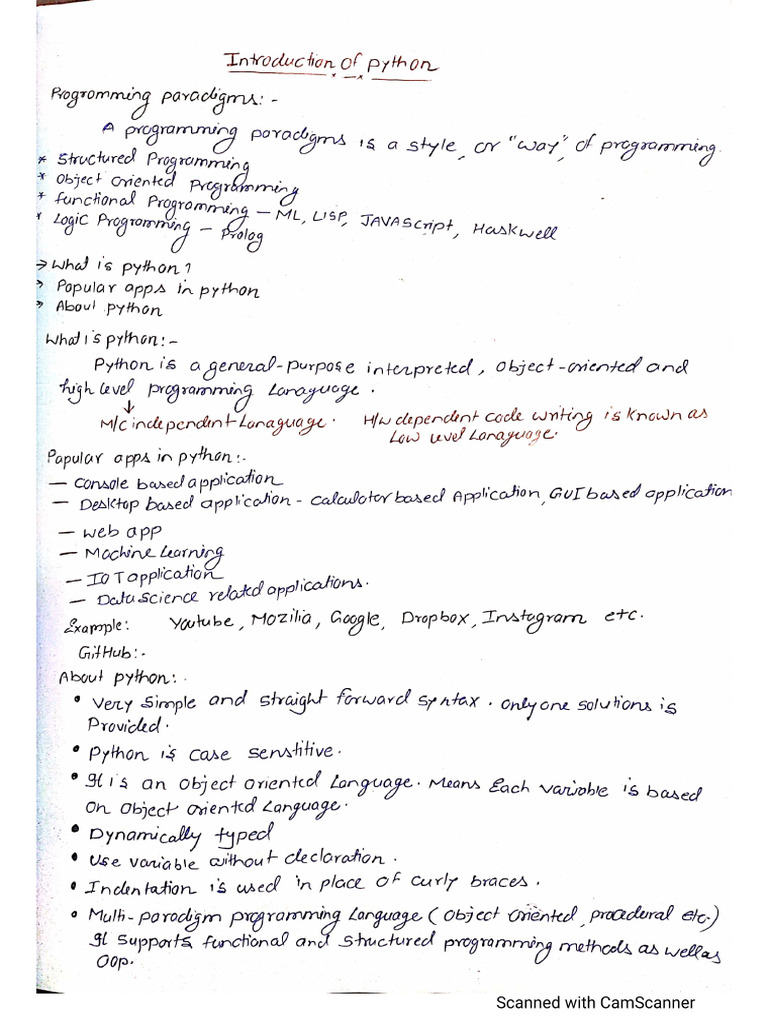 Introduction of Python
Programming paradigms:-
A programming paradigms is a style, or "way", of programming.
* Structured Programming
* Object Oriented Programming
* Functional Programming – ML, LISP, JAVAScript, Haskwell
* Logic Programming – Prolog
→ What is python?
→ Popular apps in python
→ About python
What is python:-
Python is a general-purpose interpreted, Object-oriented and
high level programming Lanaguage.
↓
M/c independent Lanaguage. H/w dependent code writing is known as
Low level Lanaguage.
Popular apps in python:-
– Console based application
– Desktop based application - calculator based Application, GUI based application
– Web app
– Machine Learning
– IOT application
– Data Science related applications.
Example: Youtube, Mozilia, Google, Dropbox, Instagram etc.
GitHub:-
About python:-
• Very simple and straight forward syntax. only one solutions is
Provided.
• Python is case senstitive.
• It is an object oriented Language. Means Each variable is based
on object oriented Language.
• Dynamically typed
• Use variable without declaration.
• Indentation is used in place of curly braces.
• Multi-paradigm programming Language (Object oriented, procedural etc.)
It supports functional and structured programming methods as well as
OOP.
Scanned with CamScanner